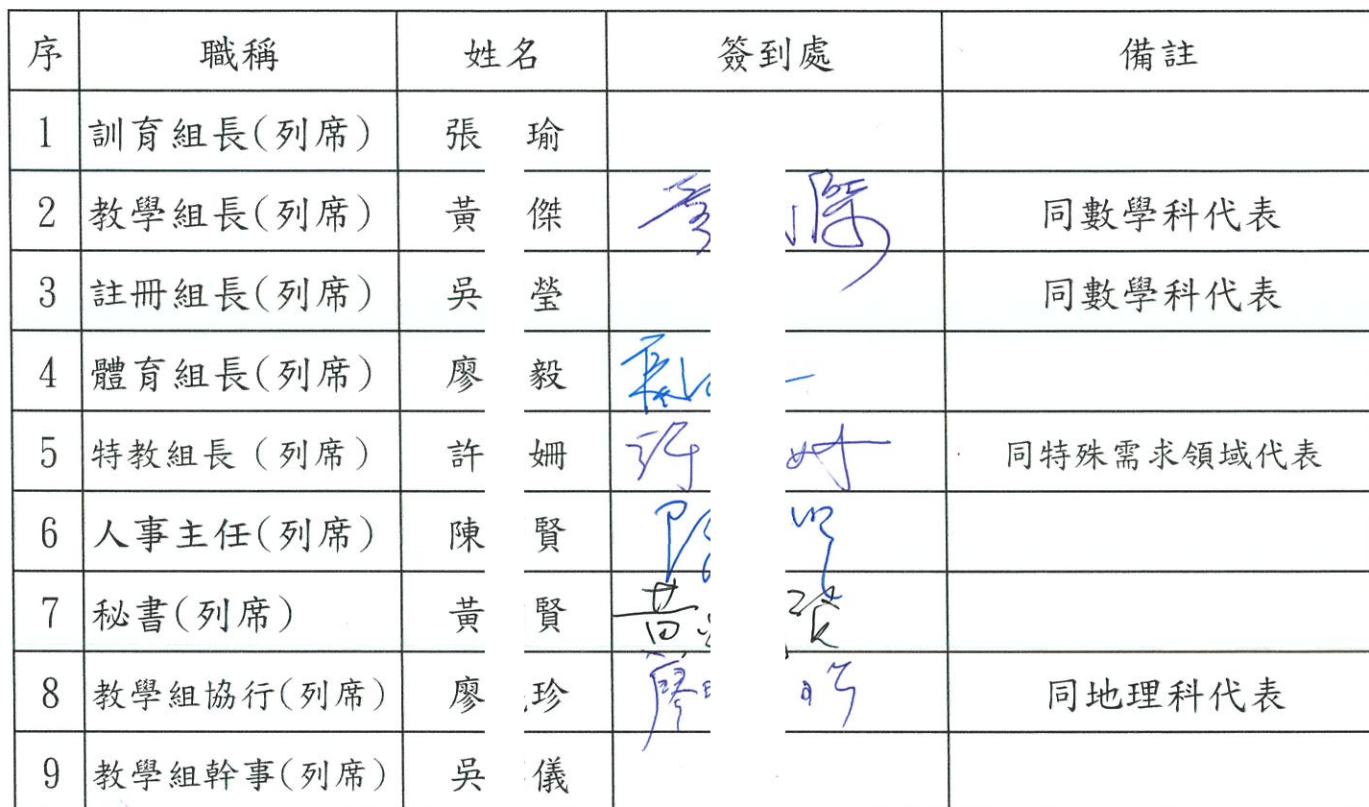 序 職稱 姓名 簽到處 備註
1 訓育組長(列席) 張 瑜
2 教學組長(列席) 黃 傑 同數學科代表
3 註冊組長(列席) 吳 瑩 同數學科代表
4 體育組長(列席) 廖 毅
5 特教組長(列席) 許 姍 許 同特殊需求領域代表
6 人事主任(列席) 陳 賢
7 秘書(列席) 黃 賢 黃
8 教學組協行(列席) 廖 珍 廖 同地理科代表
9 教學組幹事(列席) 吳 儀